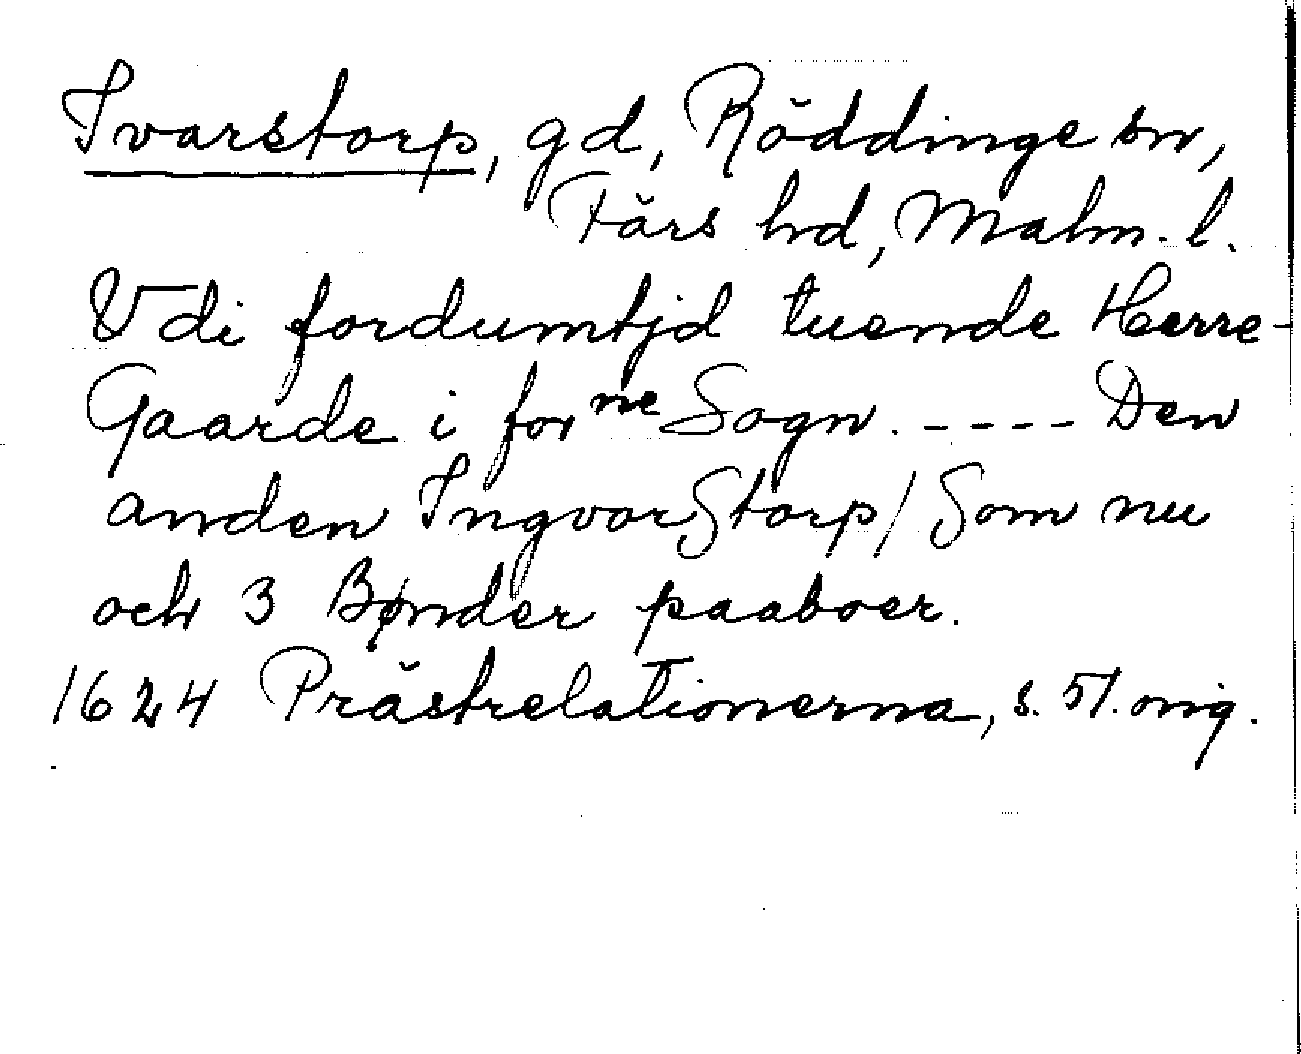 Ivarstorp, gd, Röddinge sn,
Färs hd, Malm. l.
Vdi fordumtjd tuende Herre-
Gaarde i forne Sogn. ---- Den
anden IngvorStorp/ Som nu
och 3 Bønder paaboer.
1624 Prästrelationerna, s. 51. orig.